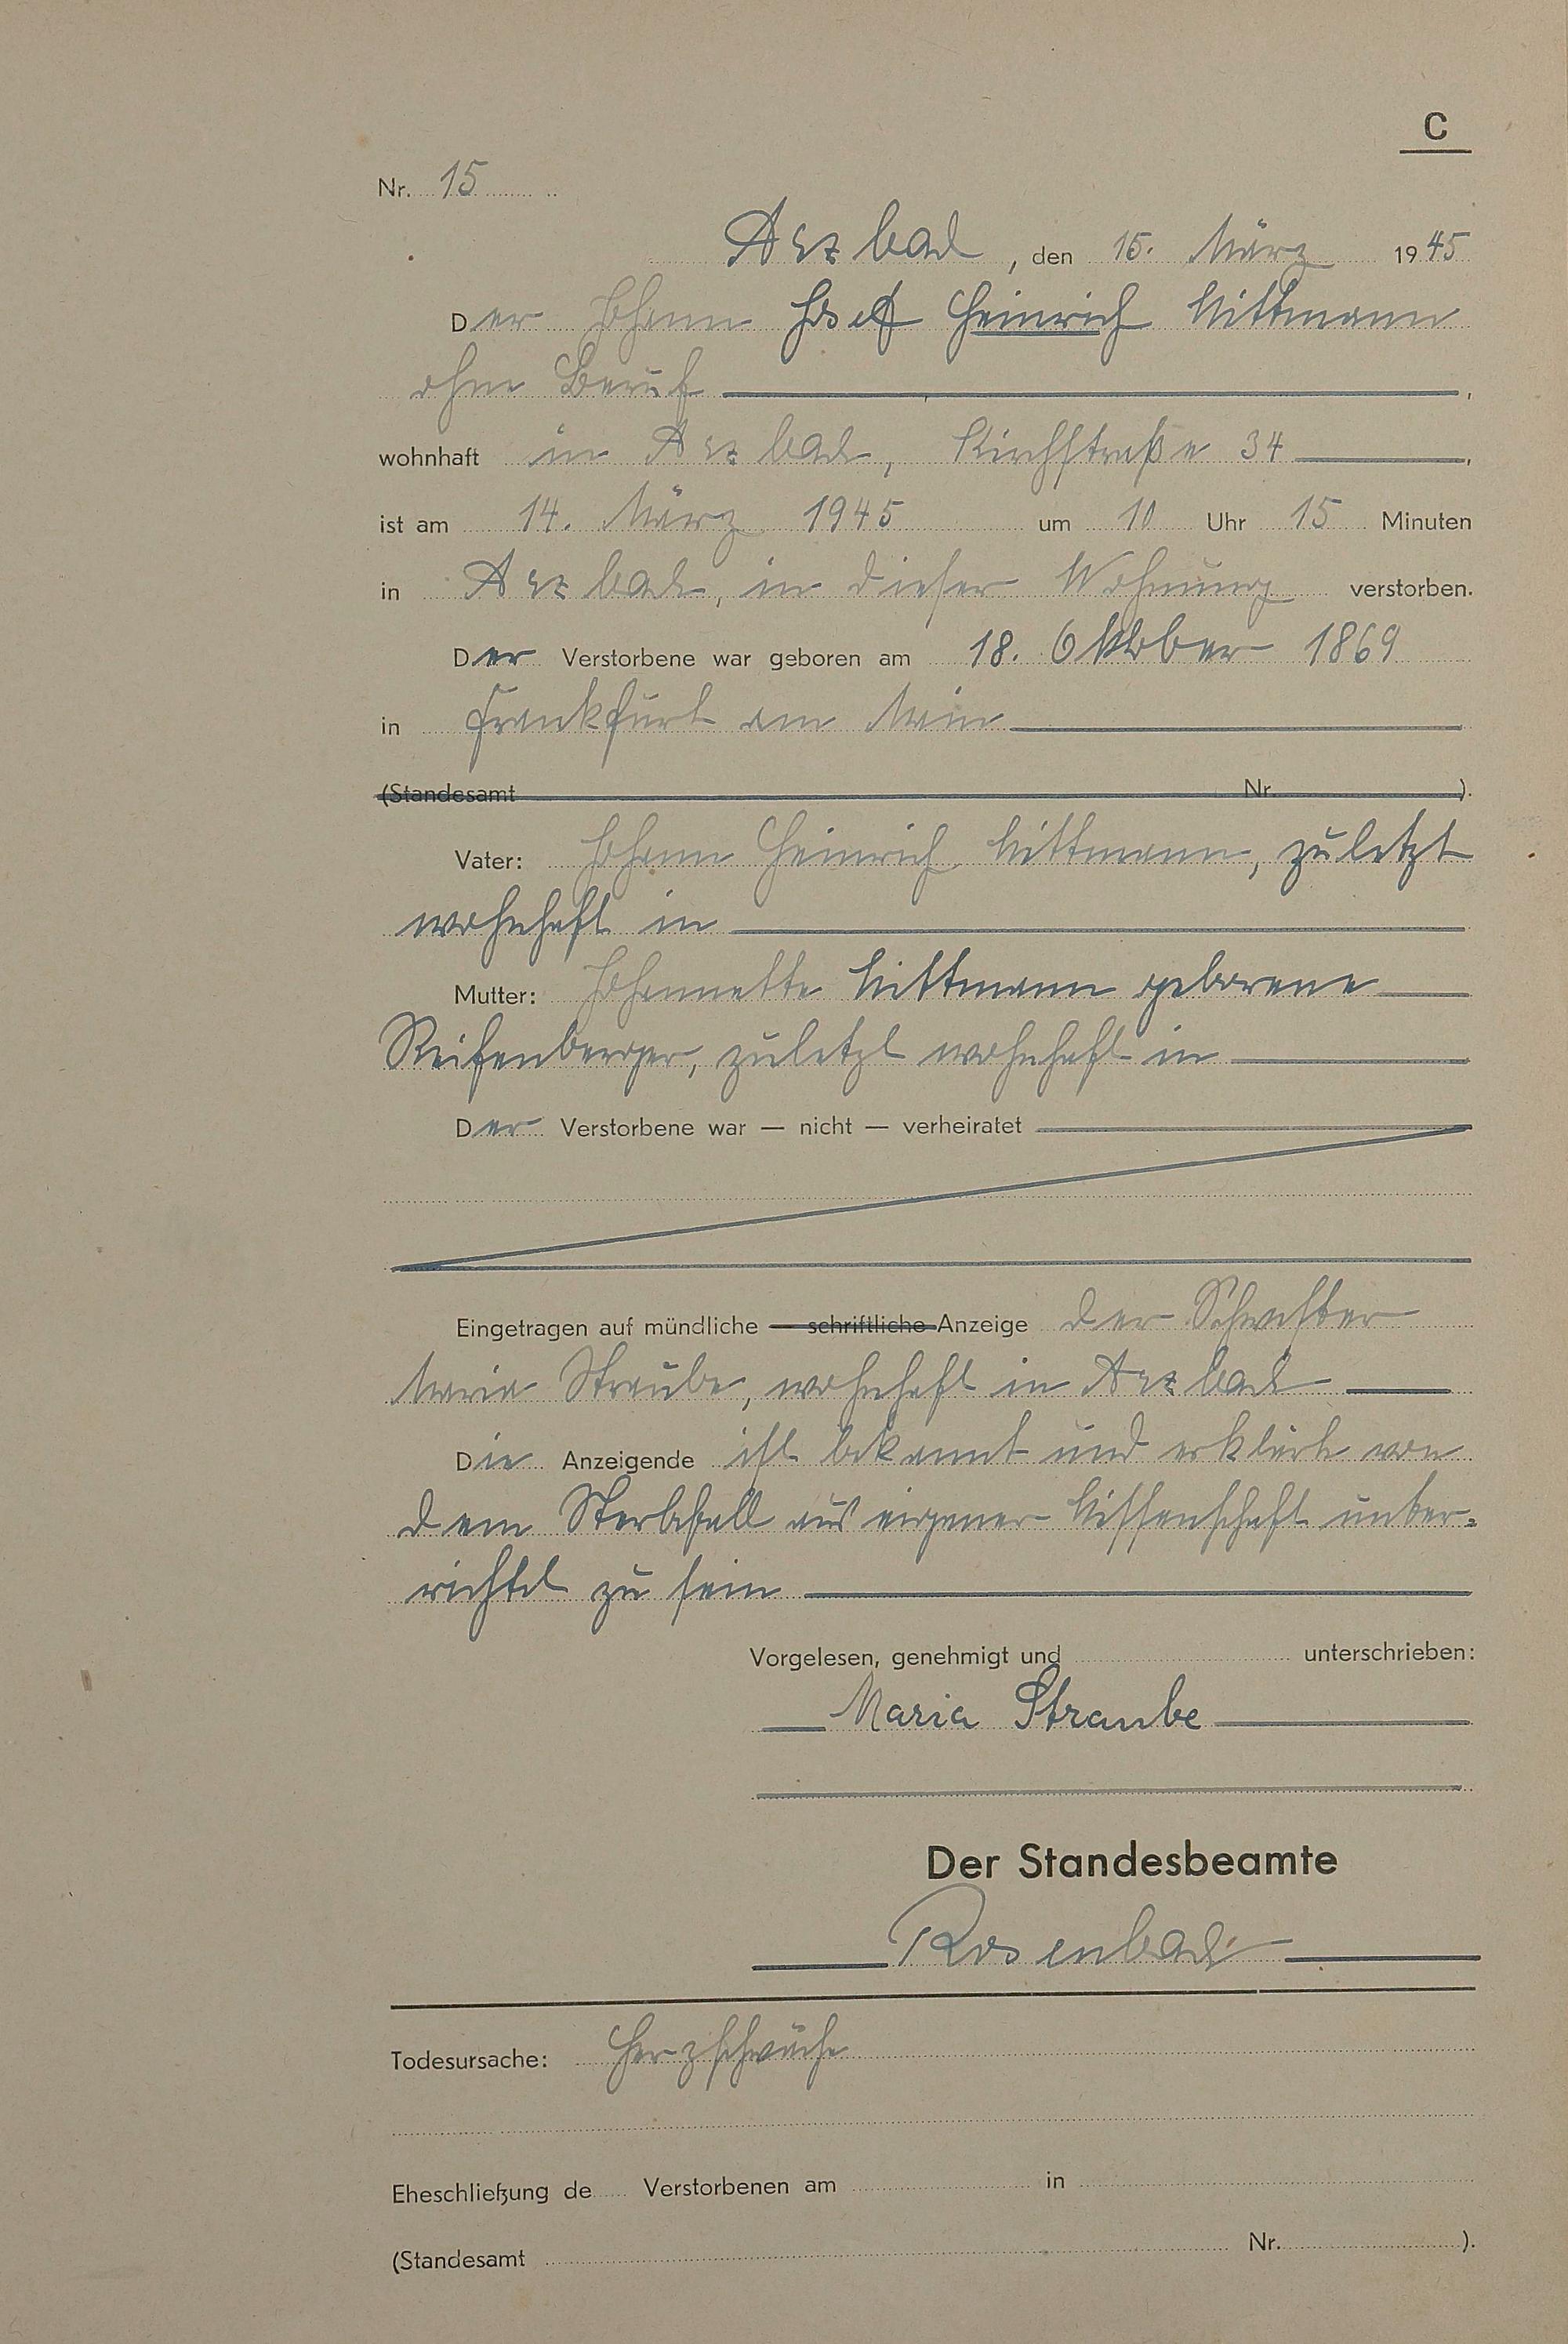 C
Nr. 15
Arzbach, den 15. März 1945
Der Johann Josef Heinrich Wittmann
ohne Beruf,
wohnhaft in Arzbach, Kirchstraße 34,
ist am 14. März 1945 um 10 Uhr 15 Minuten
in Arzbach, in dieser Wohnung verstorben.
Der Verstorbene war geboren am 18. Oktober 1869
in Frankfurt am Main
(Standesamt Nr. ).
Vater: Johann Heinrich Wittmann, zuletzt
wohnhaft in
Mutter: Johannette Wittmann geborene
Reifenberger, zuletzt wohnhaft in
Der Verstorbene war — nicht — verheiratet
Eingetragen auf mündliche — schriftliche Anzeige der Schwester
Maria Straube, wohnhaft in Arzbach
Die Anzeigende ist bekannt und erklärte von
dem Sterbefall aus eigener Wissenschaft unter-
richtet zu sein
Vorgelesen, genehmigt und unterschrieben:
Maria Straube
Der Standesbeamte
Rosenbach
Todesursache: Herzschwäche
Eheschließung de Verstorbenen am in
(Standesamt Nr. ).